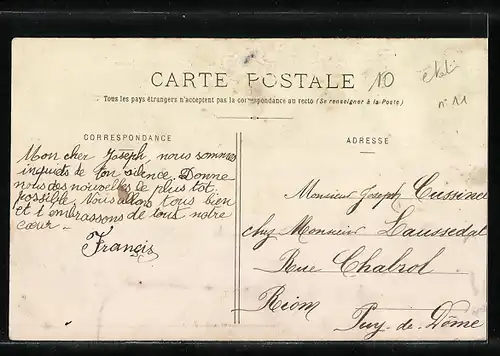 CARTE POSTALE 10
Tous les pays étrangers n'acceptent pas la correspondance au recto (Se renseigner à la Poste)
n° 11
CORRESPONDANCE
Mon cher Joseph, nous sommes
inquiets de ton silence. Donne
nous des nouvelles le plus tot
possible. Nous allons tous bien
et t'embrassons de tous notre
cœur -
Francis
ADRESSE
Monsieur Joseph Cussinel
chez Monsieur Laussedat
Rue Chabrol
Riom
Puy-de-Dôme